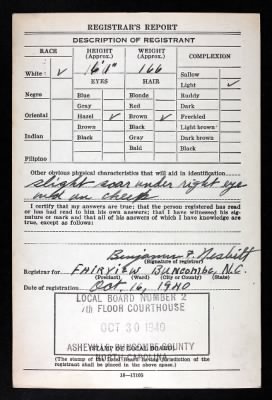 REGISTRAR'S REPORT
DESCRIPTION OF REGISTRANT
RACE HEIGHT (Approx.) WEIGHT (Approx.) COMPLEXION
White ✓ 6'1" 166 Sallow
EYES HAIR Light ✓
Negro Blue Blonde Ruddy
Gray Red Dark
Oriental Hazel ✓ Brown ✓ Freckled
Brown Black Light brown
Indian Black Gray Dark brown
Bald Black
Filipino
Other obvious physical characteristics that will aid in identification
slight scar under right eye
and on cheek
I certify that my answers are true; that the person registered has read or has had read to him his own answers; that I have witnessed his signature or mark and that all of his answers of which I have knowledge are true, except as follows:
Benjamin P. Nesbitt
(Signature of registrar)
Registrar for FAIRVIEW BUNCOMBE, N.C.
(Precinct) (Ward) (City or County) (State)
Date of registration Oct. 16, 1940
LOCAL BOARD NUMBER 2
7th FLOOR COURTHOUSE
OCT 30 1940
ASHEVILLE BUNCOMBE COUNTY
NORTH CAROLINA
(STAMP OF LOCAL BOARD)
(The stamp of the Local Board having jurisdiction of the registrant shall be placed in the above space.)
16-17105